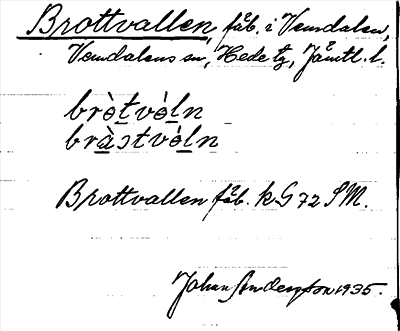 Brottvallen, fåb. i Vemdalen,
Vemdalens sn, Hede tg, Jämtl. l.
bròtvò̀ln
bràɔtvò̀ln
Brottvallen fåb. k G 72 SM.
Johan Anderson 1935.